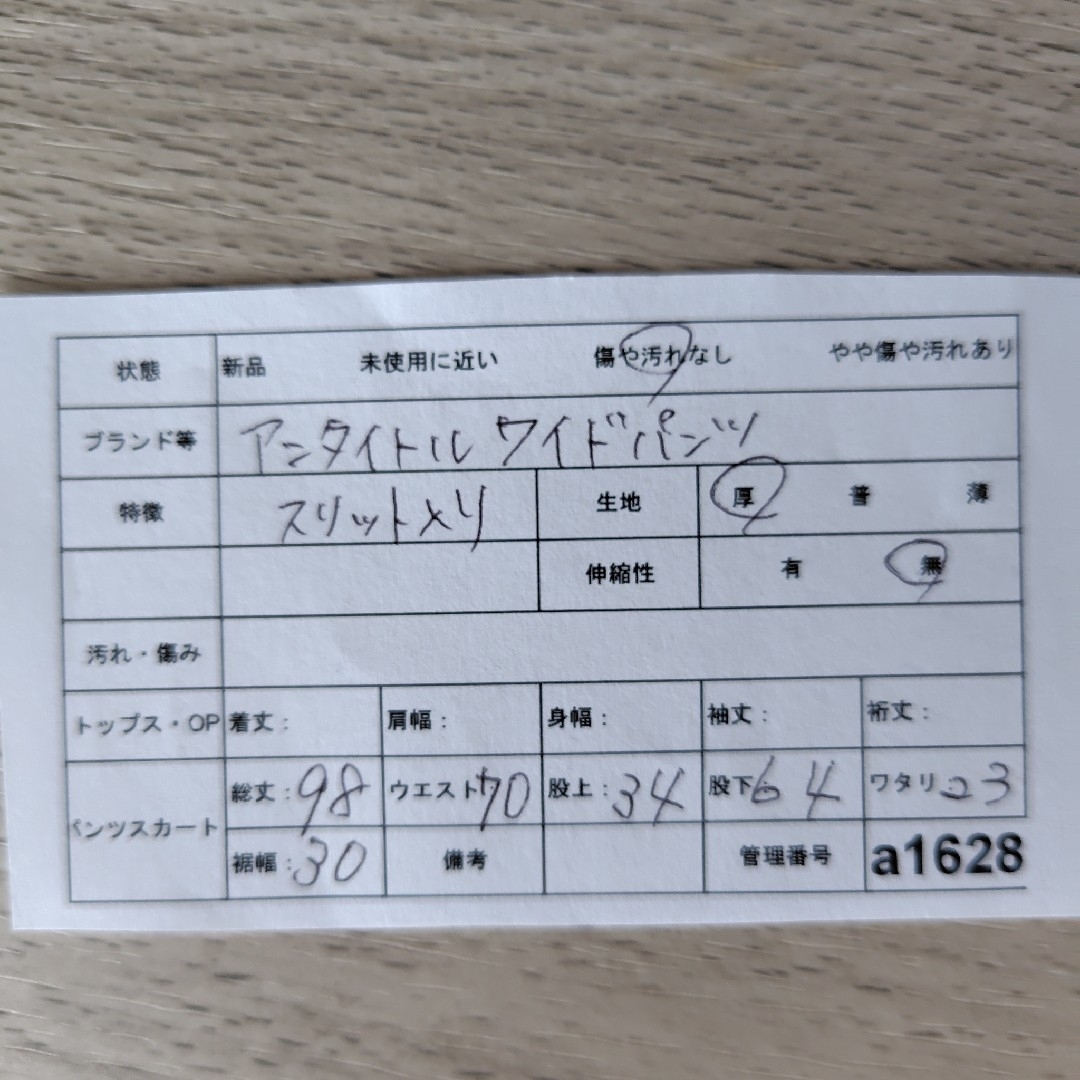 状態 新品 未使用に近い 傷や汚れなし やや傷や汚れあり
ブランド等 アンタイトル ワイドパンツ
特徴 スリットメリ 生地 厚 普 薄
伸縮性 有 無
汚れ・傷み
トップス・OP 着丈： 肩幅： 身幅： 袖丈： 裄丈：
パンツスカート 総丈：98 ウエスト 70 股上：34 股下 64 ワタリ 23
裾幅：30 備考 管理番号 a1628